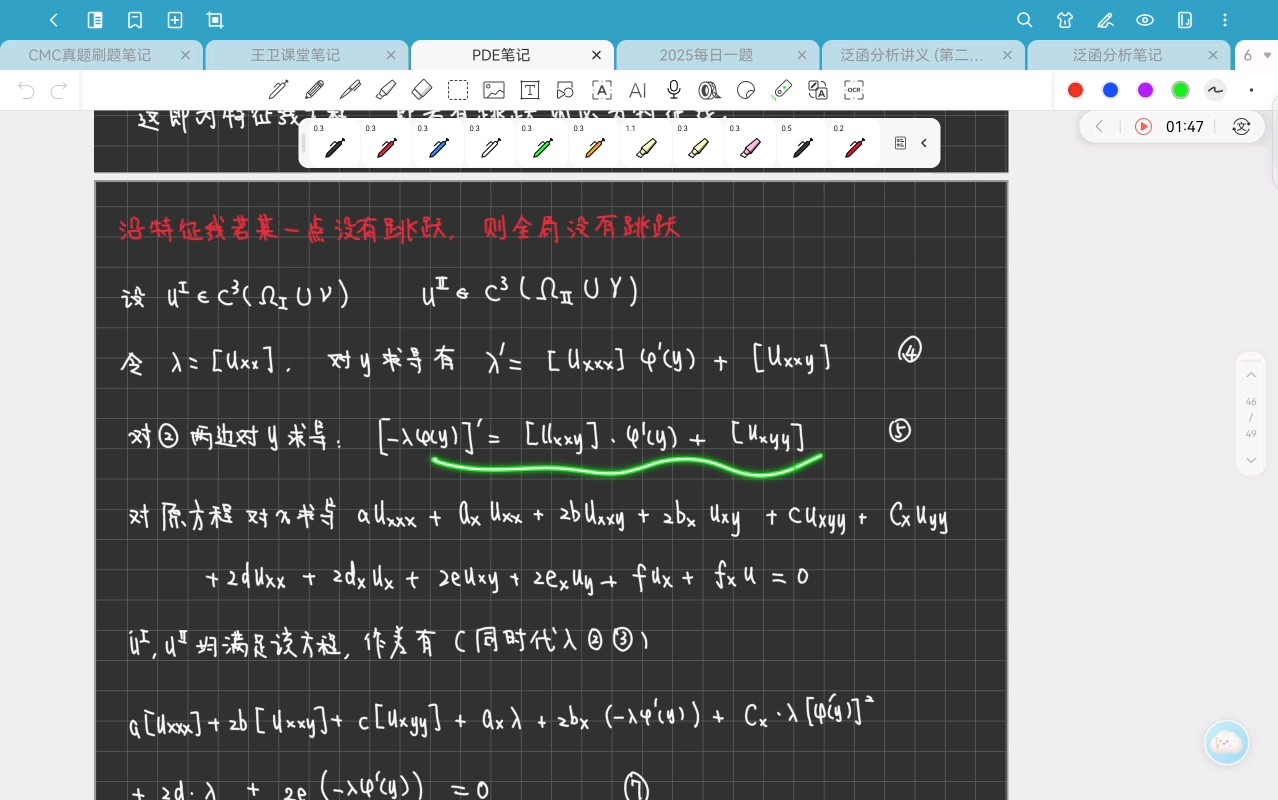 CMC真题刷题笔记 王卫课堂笔记 PDE笔记 2025每日一题 泛函分析讲义 (第二... 泛函分析笔记 6
T A AI A OCR
0.3 0.3 0.3 0.3 0.3 0.3 1.1 0.3 0.3 0.5 0.2
01:47
沿特征线若某一点没有跳跃, 则全局没有跳跃
设 u^Ⅰ ∈ C³(Ω_Ⅰ ∪ γ) u^Ⅱ ∈ C³(Ω_Ⅱ ∪ γ)
令 λ = [Uxx]. 对 y 求导有 λ' = [Uxxx] φ'(y) + [Uxxy] ④
对② 两边对 y 求导: [-λφ(y)]' = [Uxxy]·φ'(y) + [Uxyy] ⑤
对原方程 对x求导 aUxxx + axUxx + 2bUxxy + 2bxUxy + cUxyy + CxUyy
+ 2dUxx + 2dxUx + 2eUxy + 2exUy + fUx + fxU = 0
U^Ⅰ, U^Ⅱ 均满足该方程, 作差有 (同时代入②③)
a[Uxxx] + 2b[Uxxy] + c[Uxyy] + axλ + 2bx(-λφ'(y)) + Cx·λ[φ'(y)]²
+ 2d·λ + 2e(-λφ'(y)) = 0 ⑦
46
/
49